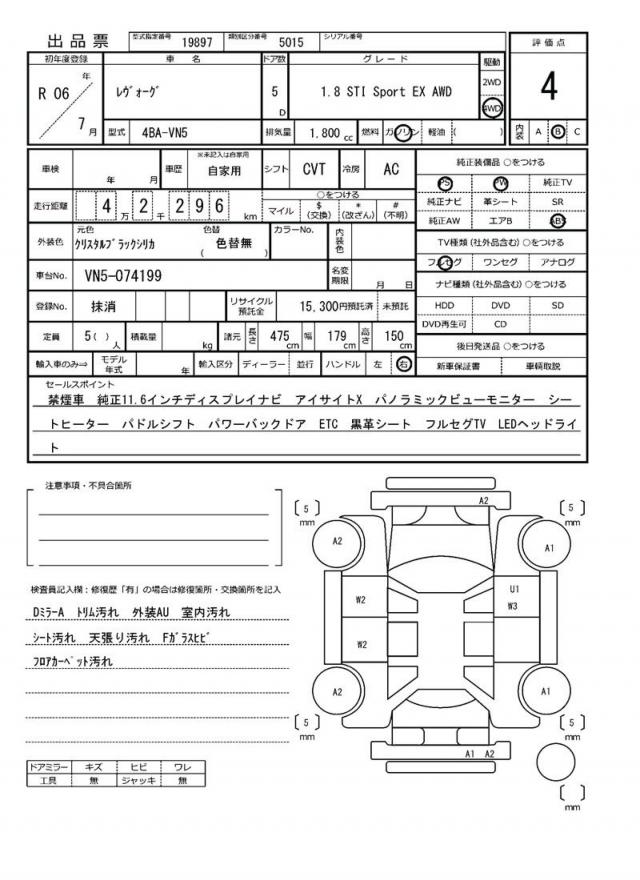 出品票 型式指定番号 19897 類別区分番号 5015 シリアル番号
初年度登録 車名 ドア数 グレード 駆動 評価点
R 06 年 7 月 レヴォーグ 5 D 1.8 STI Sport EX AWD 2WD 4WD 4
型式 4BA-VN5 排気量 1.800 cc 燃料 ガソリン 軽油 ( ) 内装 A B C
車検 年 月 車歴 ※未記入は自家用 自家用 シフト CVT 冷房 AC 純正装備品 ○をつける
PS PW 純正TV
走行距離 4 万 2 千 2 9 6 km ○をつける
マイル $ (交換) * (改ざん) # (不明)
純正ナビ 革シート SR
純正AW エアB ABS
外装色 元色 クリスタルブラックシリカ 色替 ( 色替無 ) カラーNo. 内装色
TV種類 (社外品含む) ○をつける
フルセグ ワンセグ アナログ
車台No. VN5-074199 名変期限 月 日
ナビ種類 (社外品含む) ○をつける
登録No. 抹消 リサイクル預託金 15,300円預託済 未預託
HDD DVD SD
DVD再生可 CD
定員 5( ) 人 積載量 kg 諸元 長さ 475 cm 幅 179 cm 高さ 150 cm
後日発送品 ○をつける
輸入車のみ⇒ モデル年式 年 輸入区分 ディーラー 並行 ハンドル 左 右 新車保証書 車輌取説
セールスポイント
禁煙車 純正11.6インチディスプレイナビ アイサイトX パノラミックビューモニター シー
トヒーター パドルシフト パワーバックドア ETC 黒革シート フルセグTV LEDヘッドライ
ト
注意事項・不具合箇所
検査員記入欄:修復歴「有」の場合は修復箇所・交換箇所を記入
DミラーA トリム汚れ 外装AU 室内汚れ
シート汚れ 天張り汚れ Fガラスヒビ
フロアカーペット汚れ
ドアミラー キズ ヒビ ワレ
工具 無 ジャッキ 無
A2
[ 5 ] mm [ 5 ] mm
A2 A1
W2 U1
W3
W2
A2 A1
[ 5 ] mm [ 5 ] mm
A1 A2
[ ] mm